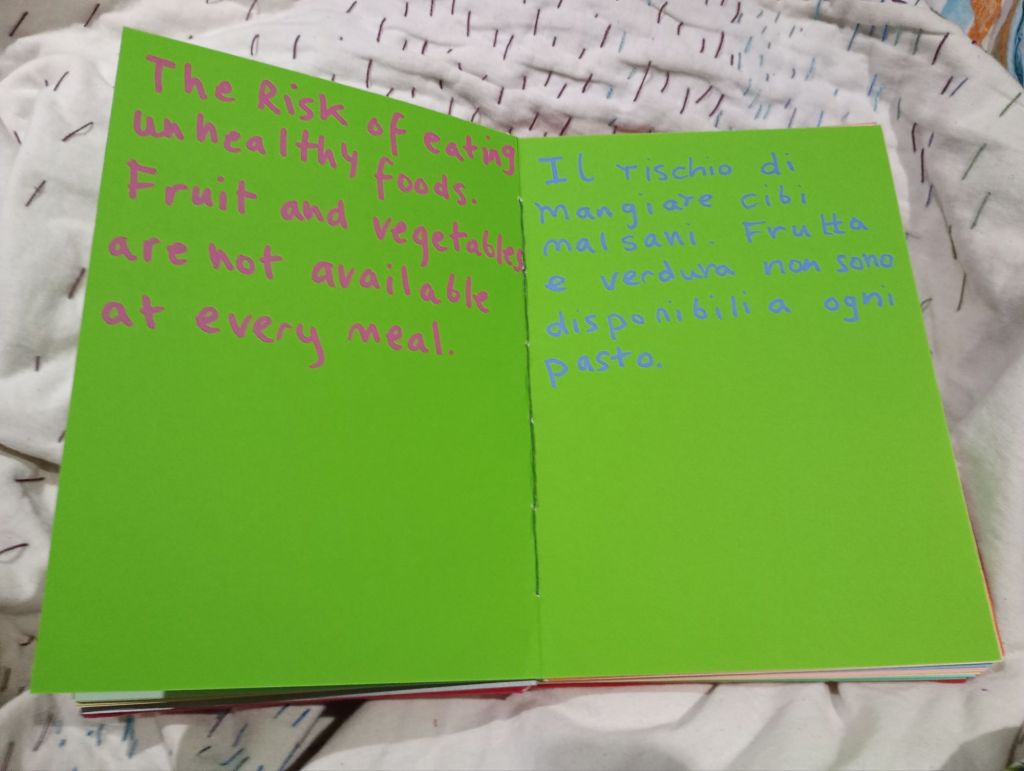 The Risk of eating
unhealthy foods.
Fruit and vegetables
are not available
at every meal.
Il rischio di
mangiare cibi
malsani. Frutta
e verdura non sono
disponibili a ogni
pasto.